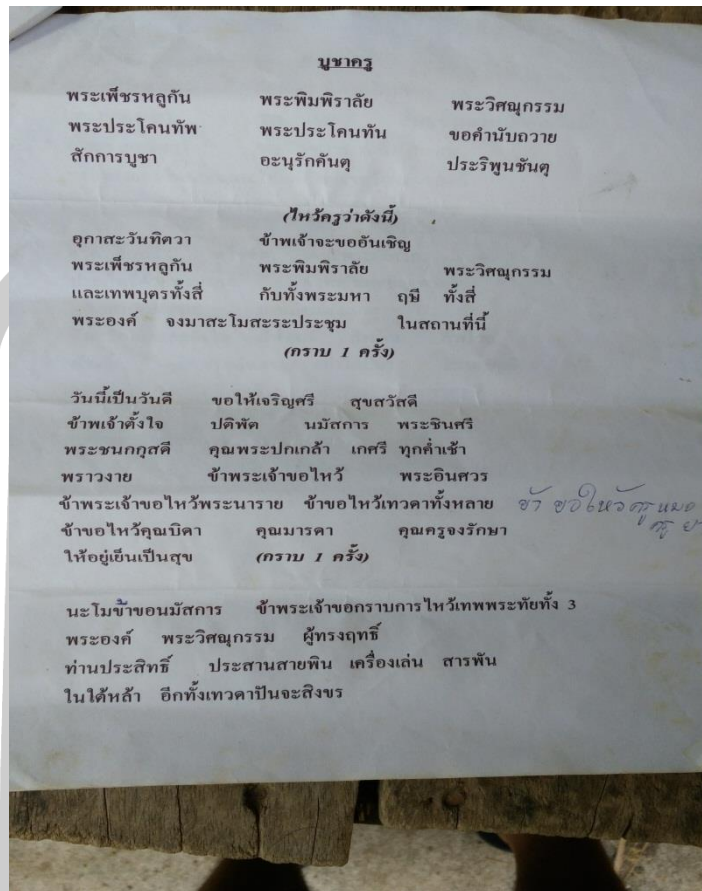 บูชาครู
พระเพ็ชรหลูกัน พระพิมพิราลัย พระวิศณุกรรม
พระประโคนทัพ พระประโคนทัน ขอคำนับถวาย
สักการบูชา อะนุรักคันตุ ประริพูนชันตุ
(ไหว้ครูว่าดังนี้)
อุกาสะวันทิตวา ข้าพเจ้าจะขออันเชิญ
พระเพ็ชรหลูกัน พระพิมพิราลัย พระวิศณุกรรม
และเทพบุตรทั้งสี่ กับทั้งพระมหา ฤษี ทั้งสี่
พระองค์ จงมาสะโมสะระประชุม ในสถานที่นี้
(กราบ 1 ครั้ง)
วันนี้เป็นวันดี ขอให้เจริญศรี สุขสวัสดี
ข้าพเจ้าตั้งใจ ปติพัต นมัสการ พระชินศรี
พระชนกกุสดี คุณพระปกเกล้า เกศรี ทุกค่ำเช้า
พราวงาย ข้าพระเจ้าขอไหว้ พระอินศวร
ข้าพระเจ้าขอไหว้พระนาราย ข้าขอไหว้เทวดาทั้งหลาย ข้า ขอไหว้ครูหมอ
ครู
ข้าขอไหว้คุณบิดา คุณมารดา คุณครูจงรักษา
ให้อยู่เย็นเป็นสุข (กราบ 1 ครั้ง)
นะโมข้าขอนมัสการ ข้าพระเจ้าขอกราบการไหว้เทพพระทัยทั้ง 3
พระองค์ พระวิศณุกรรม ผู้ทรงฤทธิ์
ท่านประสิทธิ์ ประสานสายพิน เครื่องเล่น สารพัน
ในใต้หล้า อีกทั้งเทวดาปันจะสิงขร